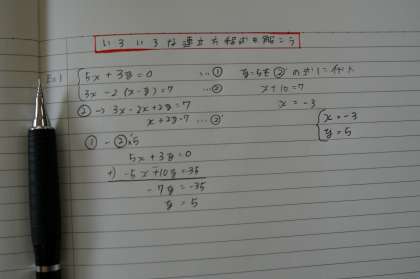 いろいろな連立方程式を解こう
Ex 1
5x + 3y = 0 …①
3x - 2(x - y) = 7 …②
② → 3x - 2x + 2y = 7
x + 2y = 7 …②'
① - ②'×5
5x + 3y = 0
+) -5x + 10y = 35
-7y = -35
y = 5
y = 5を②'の式に代入
x + 10 = 7
x = -3
x = -3
y = 5